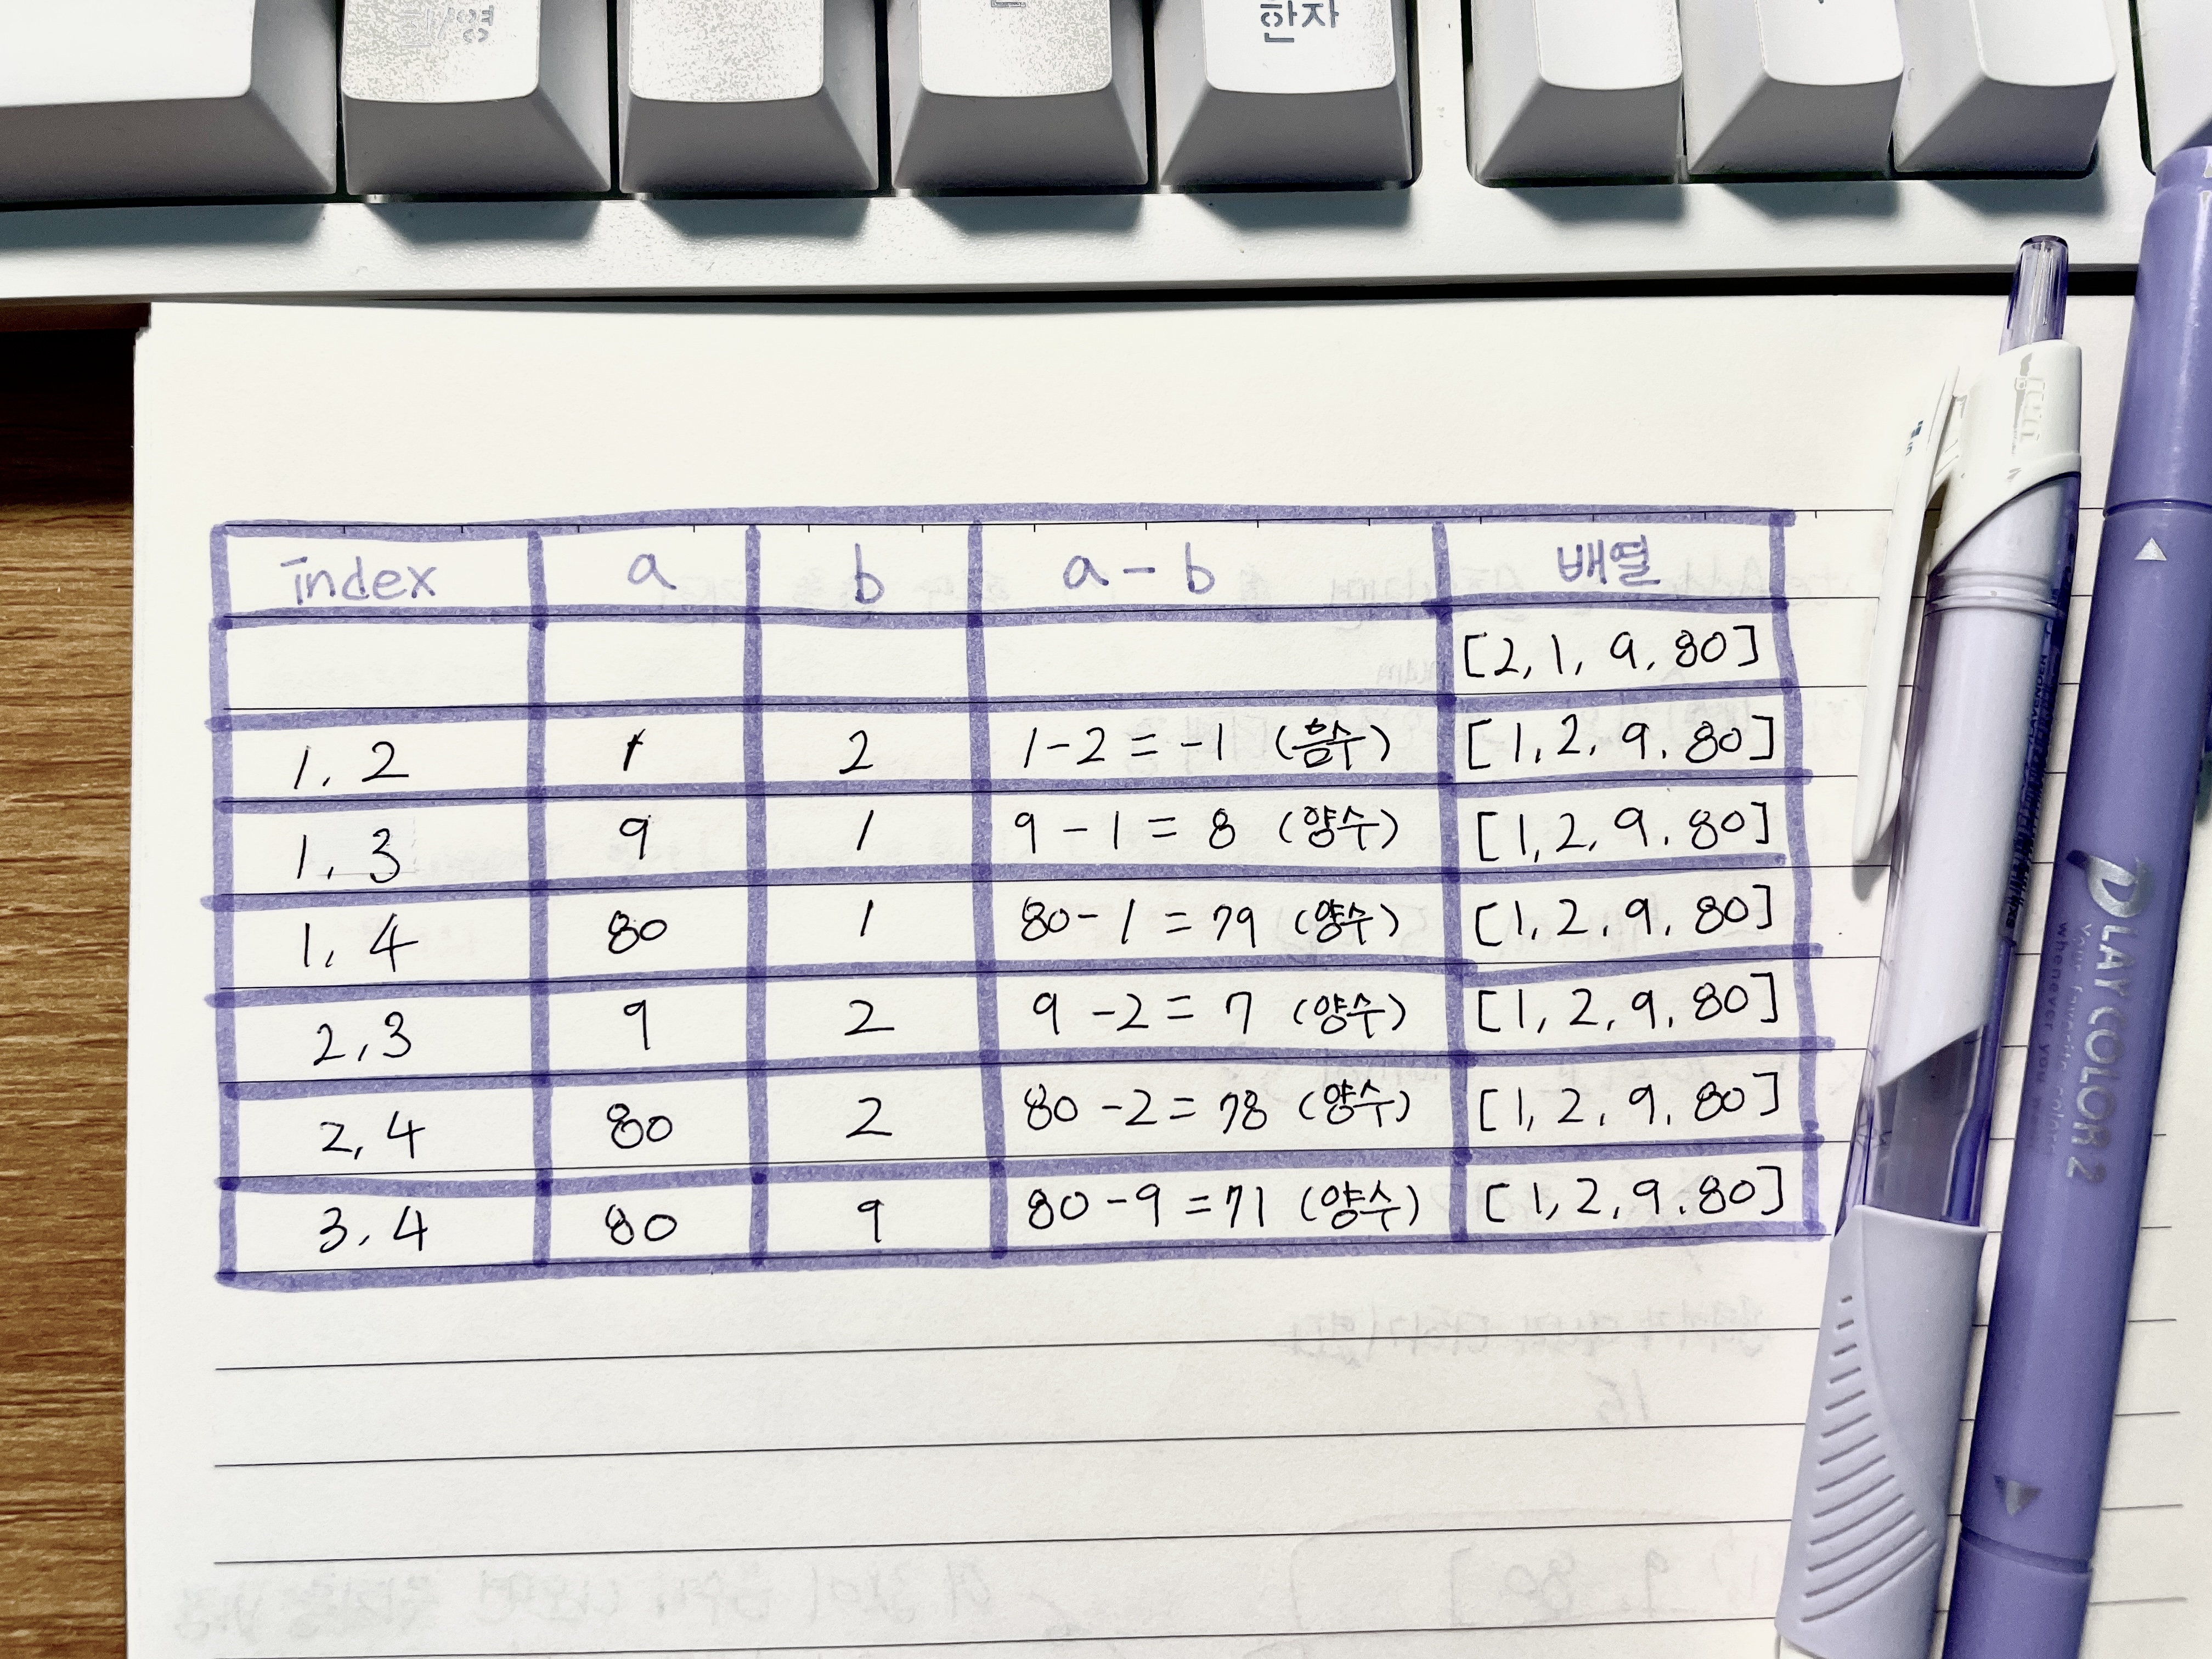 한자
index a b a-b 배열
[2, 1, 9, 80]
1, 2 1 2 1-2 = -1 (음수) [1, 2, 9, 80]
1, 3 9 1 9 - 1 = 8 (양수) [1, 2, 9, 80]
1, 4 80 1 80 - 1 = 79 (양수) [1, 2, 9, 80]
2, 3 9 2 9 - 2 = 7 (양수) [1, 2, 9, 80]
2, 4 80 2 80 - 2 = 78 (양수) [1, 2, 9, 80]
3, 4 80 9 80 - 9 = 71 (양수) [1, 2, 9, 80]
PLAYCOLOR 2
your favorite color
whenever you